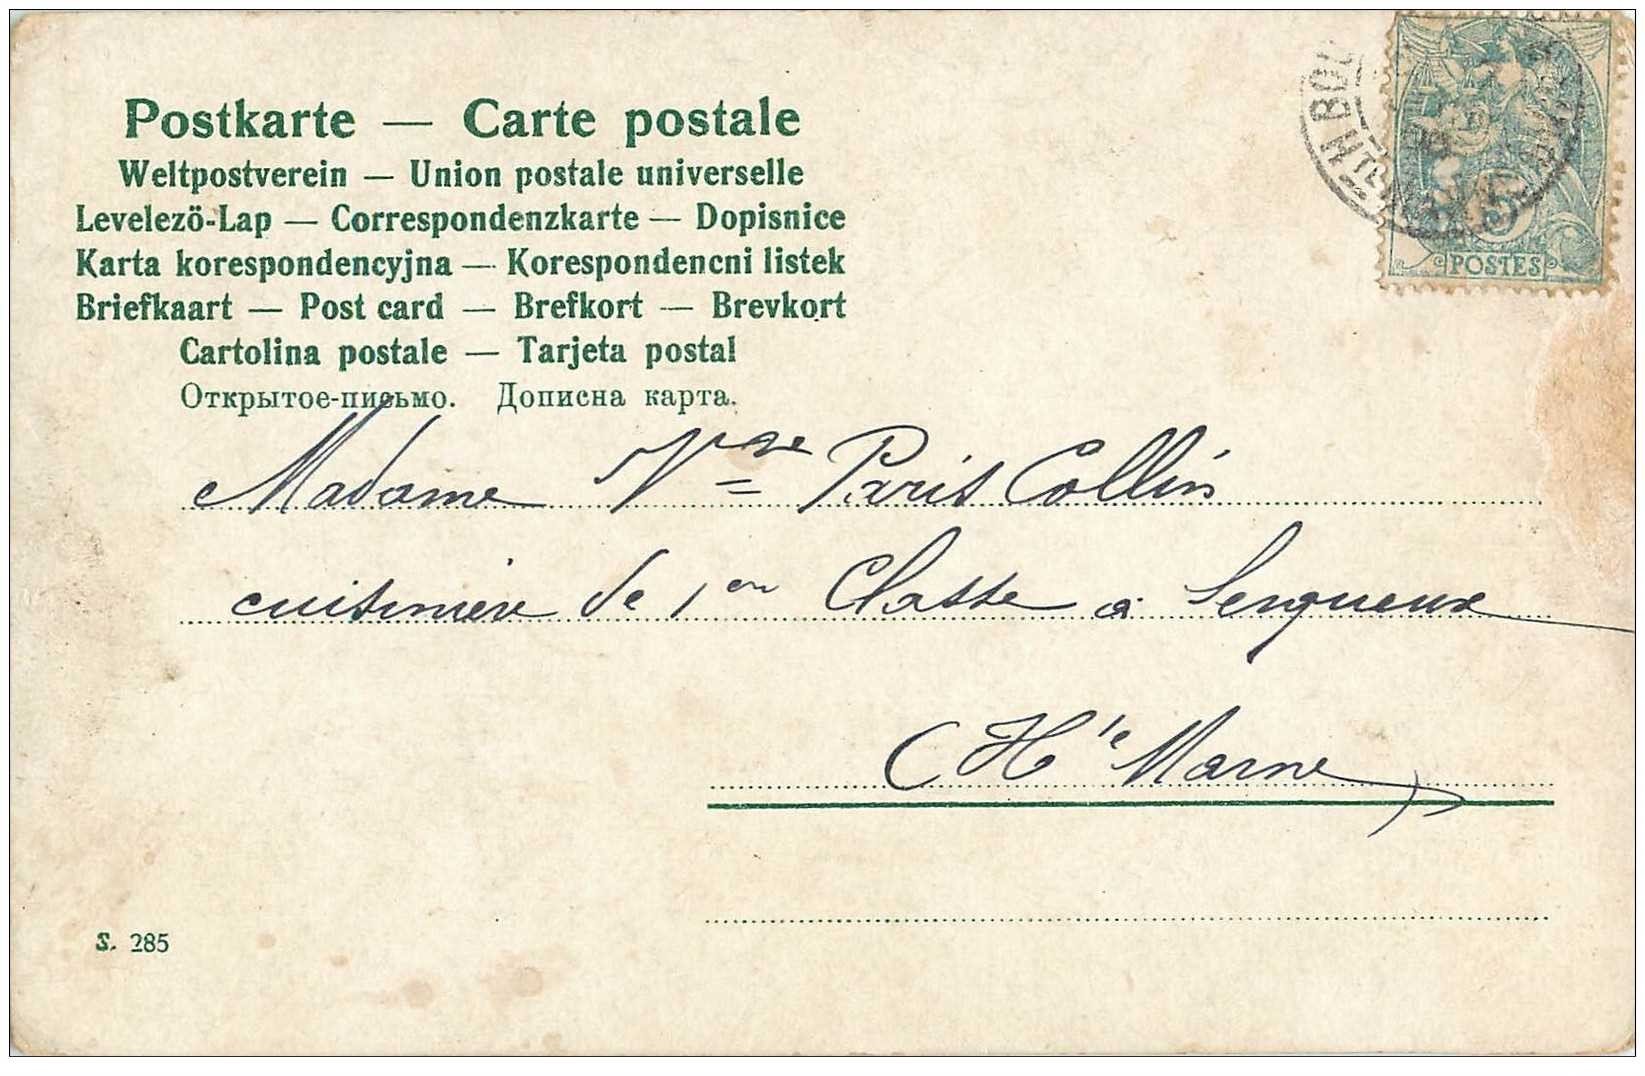 Postkarte — Carte postale
Weltpostverein — Union postale universelle
Levelezö-Lap — Correspondenzkarte — Dopisnice
Karta korespondencyjna — Korespondencni listek
Briefkaart — Post card — Brefkort — Brevkort
Cartolina postale — Tarjeta postal
Открытое-письмо. Дописна карта.
5
POSTES
Madame Vve Paris Collin
cuisinière de 1ere Classe a Serqueux
(Hte Marne)
S. 285